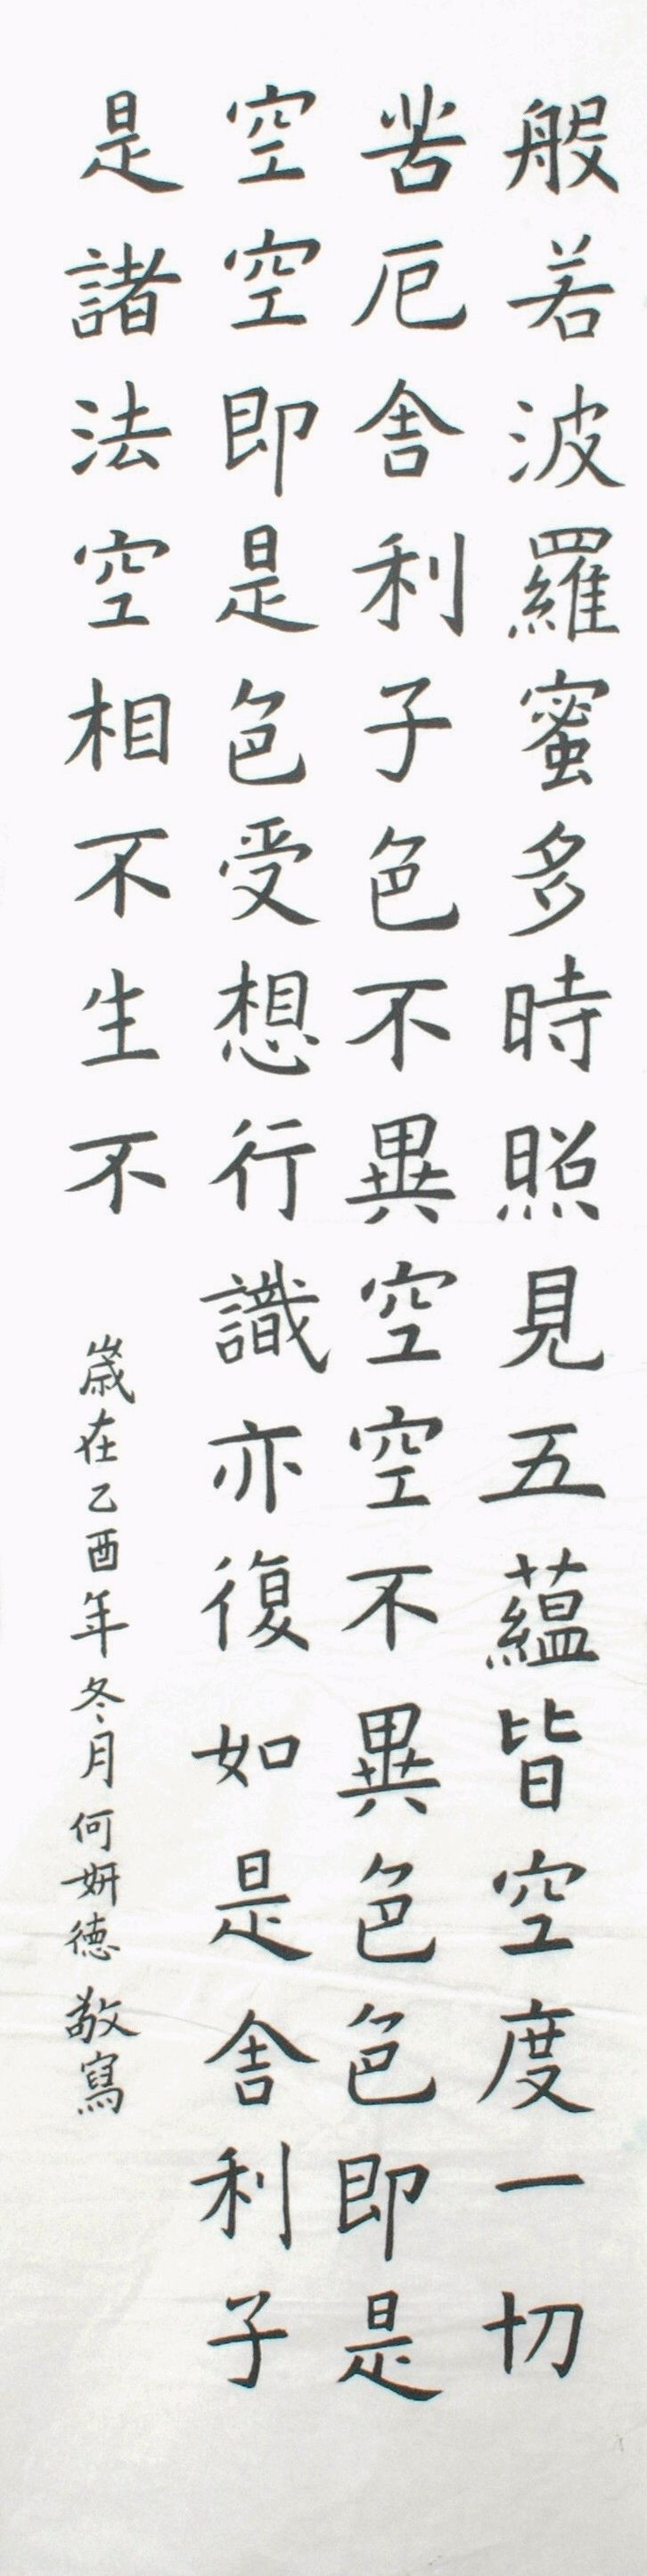 般若波羅蜜多時照見五蘊皆空度一切
苦厄舎利子色不異空空不異色色即是
空空即是色受想行識亦復如是舎利子
是諸法空相不生不
歳在乙酉年冬月何妍德敬寫